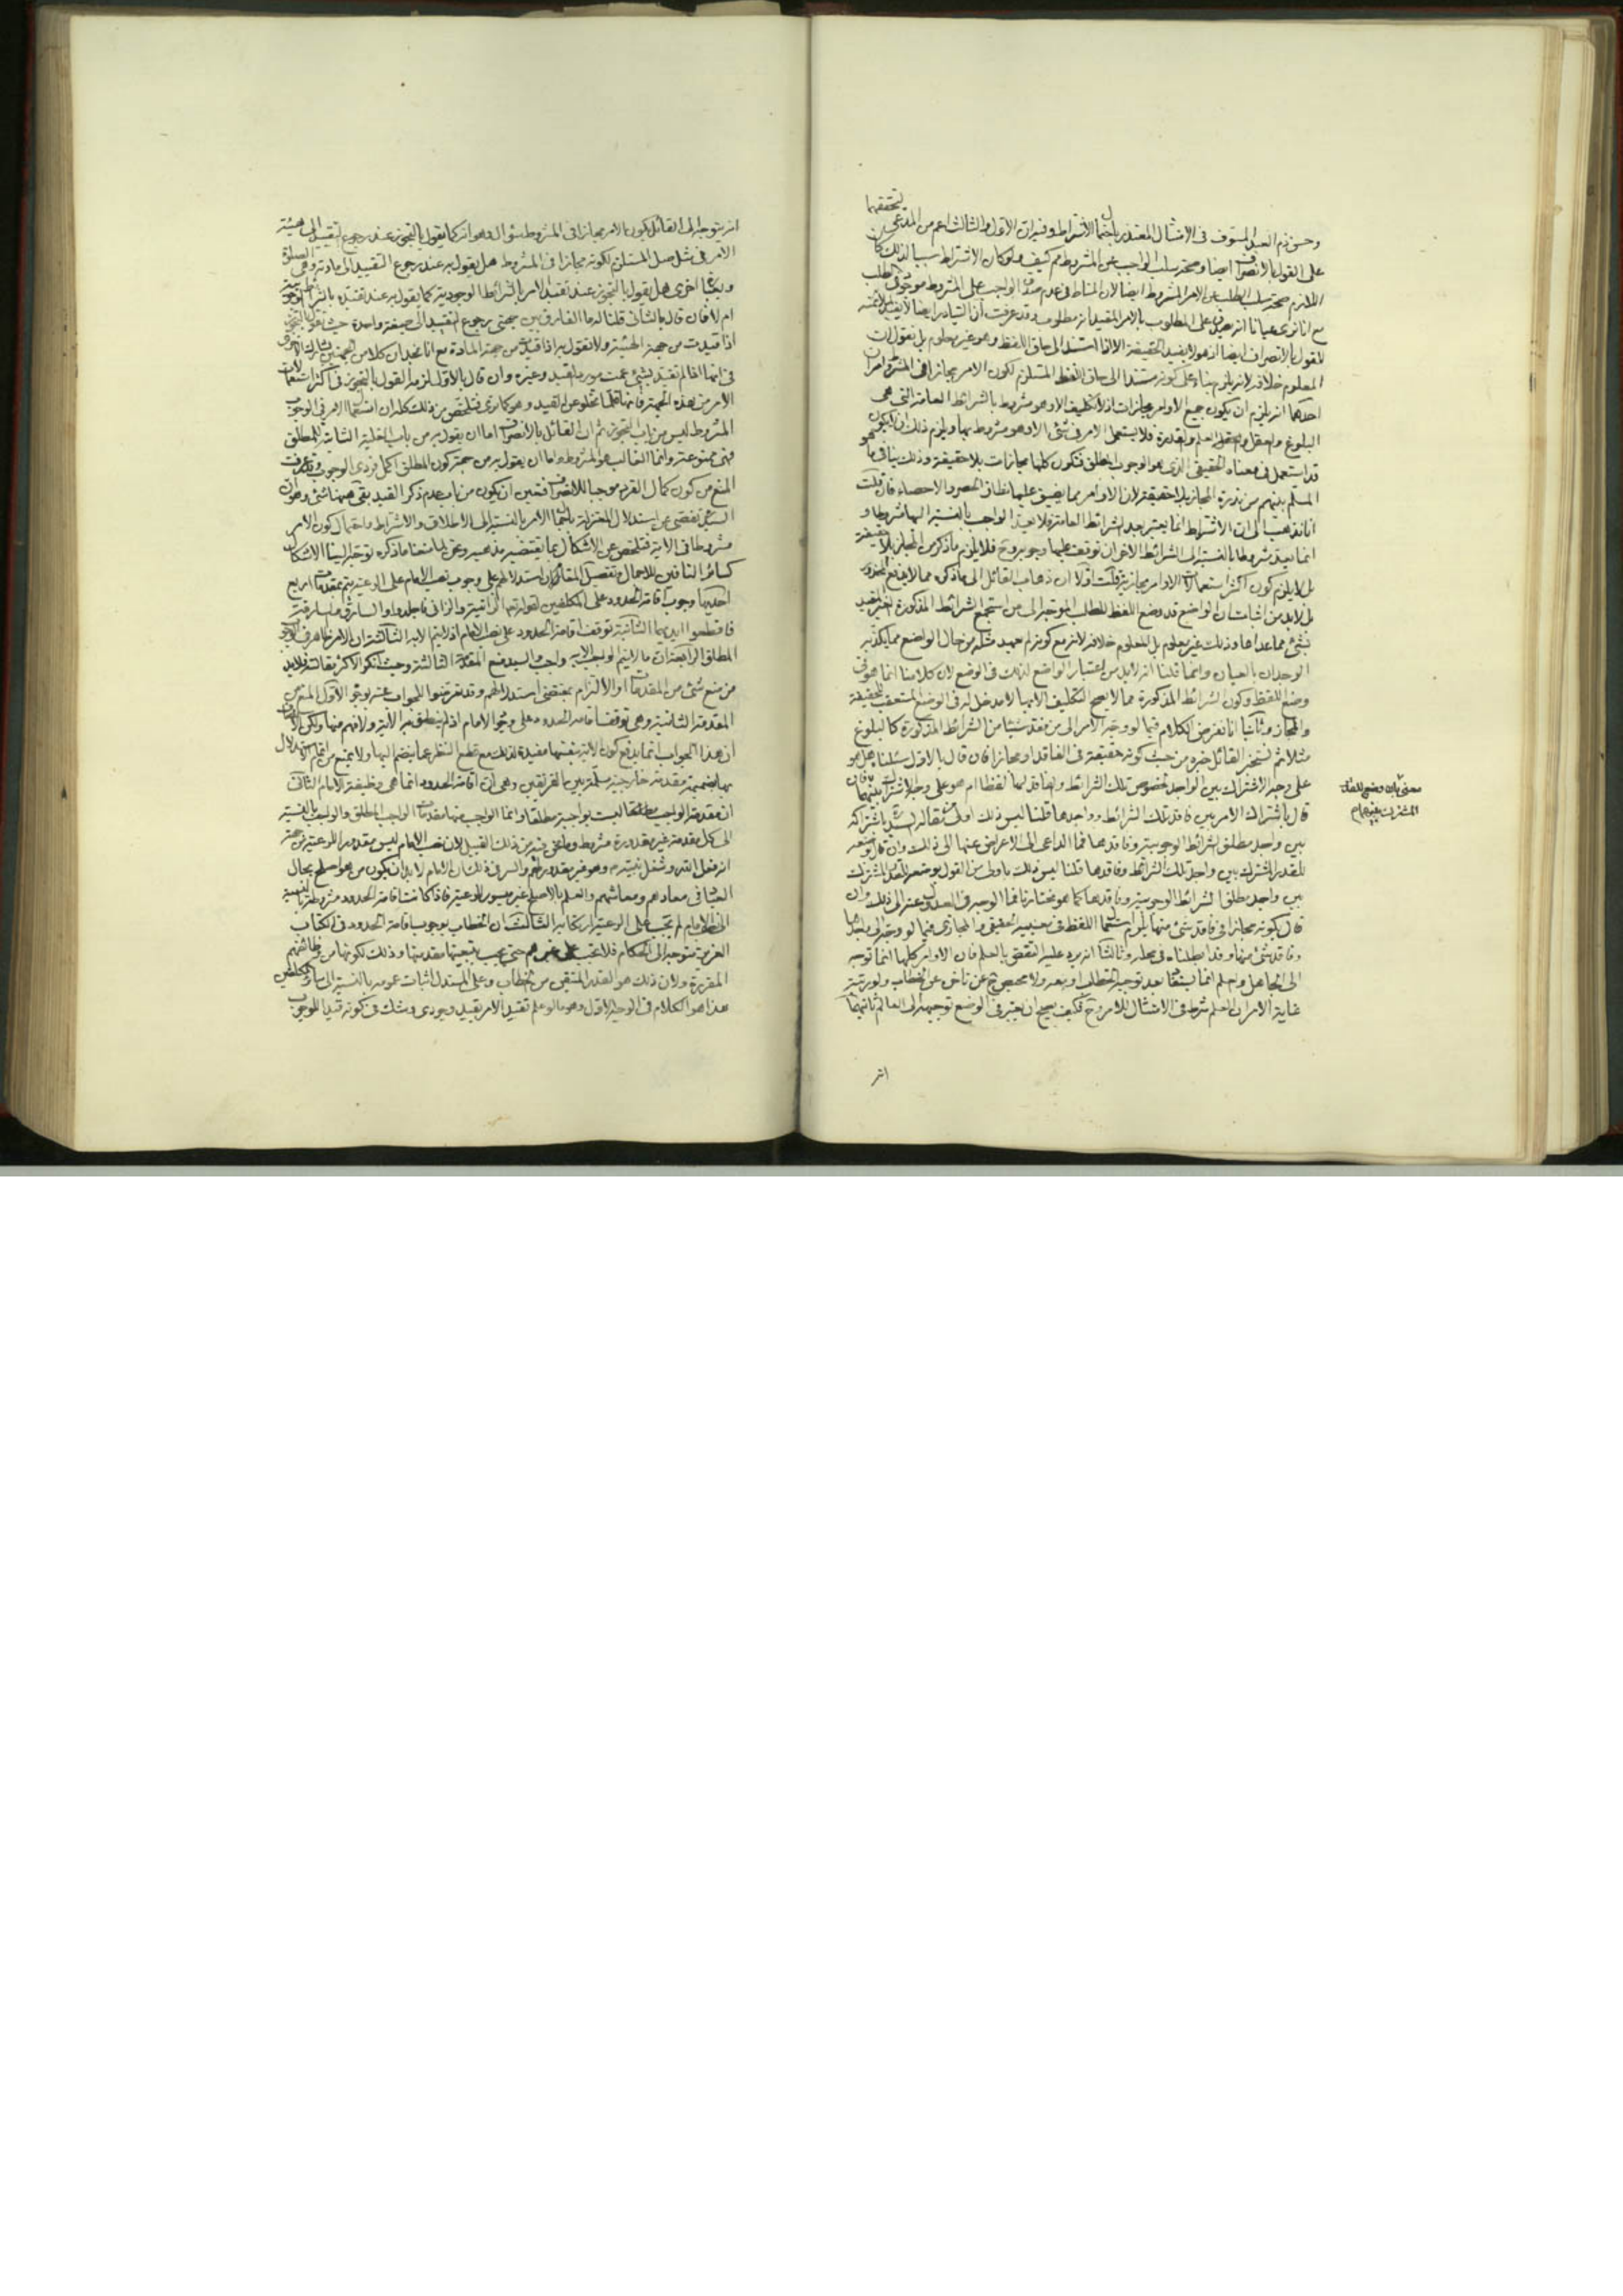 لتحققها
وحسن ذم العبد المسوف في الامتثال المعتذر باحتمال الاشتراط وفيه ان الاول والثالث اعم من المدعى
على القول بالانصراف ايضا وصحة سلب الواجب عن المشروط مم كيف ولو كان الاشتراط سببا لذلك
صحة سلب الطلب عن الامر المشروط ايضا لان المناط في عدم صدق الواجب على المشروط موجود في الطلب
مع انا نرى عيانا انه يصدق على المطلوب بالامر المقيد انه مطلوب وقد عرفت ان التبادر ايضا لا
للقول بالانصراف ايضا اذ هو لا يفيد الحقيقة الا اذا استند الى حاق اللفظ وهو غير معلوم بل نقول ان
المعلوم خلافه لانه يلزم بناء على كونه مستندا الى حاق اللفظ المستلزم لكون الامر مجازا في المشروط امران
احدهما انه يلزم ان يكون جميع الاوامر مجازات اذ لا تكليف الا وهو مشروط بالشرائط العامة التي هي
البلوغ والعقل والعلم والقدرة فلا يستعمل الامر في شئ الا وهو مشروط بها ويلزم ذلك ان لا يكون
قد استعمل في معناه الحقيقي الذي هو الوجوب المطلق فتكون كلها مجازات بلا حقيقة وذلك ينافي ما هو
المسلم بينهم من ندرة المجاز بلا حقيقة لان الاوامر مما يضيق عليها نطاق الحصر والاحصاء فان قلت
انا نذهب الى ان الاشتراط انما يعتبر بعد الشرائط العامة فلا يعد الواجب بالنسبة اليها مشروطا و
انما يعد مشروطا بالنسبة الى الشرائط الاخر ان توقف عليها وجوبه وح فلا يلزم ما ذكر من المجاز بلا حقيقة
بل لا يلزم كون اكثر استعمالات الاوامر مجازية قلت اولا ان ذهاب القائل الى ما ذكره مما لا يدفع المحذور
بل لابد من اثبات ان الواضع قد وضع اللفظ للطلب الموجه الى من استجمع الشرائط المذكورة الغير المقيد
بشئ مما عداها وذلك غير معلوم بل المعلوم خلافه لانه مع كونه لم يعهد مثله من حال الواضع مما يكذبه
الوجدان بالعيان وانما قلنا انه لابد من اعتبار الواضع لذلك في الوضع لان كلامنا انما هو في
وضع اللفظ وكون الشرائط المذكورة مما لا يصح التكليف الا بها لا مدخل له في الوضع المستعقب للحقيقة
والمجاز وثانيا انا نفرض الكلام فيما لو وجه الامر الى من فقد شيئا من الشرائط المذكورة كالبلوغ
مثلا ثم نستخبر القائل خبره من حيث كونه حقيقة في الفاقد او مجازا فان قال بالاول سئلناه هل هو
على وجه الاشتراك بين الواجد لخصوص تلك الشرائط والفاقد لها لفظا ام هو على وجه الاشتراك بينهما فان
قال باشتراك الامر بين فاقد تلك الشرائط وواجدها قلنا ليس ذلك اولى مما قاله السيد باشتراكه
بين واجد مطلق الشرائط الوجوبية وفاقدها فما الداعي الى الاعراض عنها الى ذلك وان قال بوضعه
للقدر المشترك بين واجد تلك الشرائط وفاقدها قلنا ليس ذلك باولى من القول بوضعه للقدر المشترك
بين واجد مطلق الشرائط الوجوبية وفاقدها كما هو مختارنا فما الوجه في العدول عنه الى ذلك وان
قال بكونه مجازا في فاقد شئ منها يلزم استعمال اللفظ في معنييه الحقيقي والمجازي فيما لو وجه الى واجدها
وفاقد شئ منها وقد ابطلناه في محله وثالثا انه يرد عليه النقض بالعلم فان الاوامر كلها انما توجه
الى الجاهل والعلم انما يتحقق بعد توجه الخطاب اليه ولا محيص ح عن تأخر عن الخطاب ولو رتبة
غاية الامر ان العلم شرط في الامتثال للامر وح فكيف يصح ان يعتبر في الوضع توجيهه الى العالم ثانيهما
انه
معنى وضع اللفظ
المشترك
انه يتوجه الى القائل بكون الامر مجازا في المشروط سؤال وهو انه كما يقول بالتجوز عند رجوع القيد الى هيئة
الامر في مثل صل المستلزم لكونه مجازا في المشروط هل يقول به عند رجوع التقييد الى مادته وهي الصلوة
وبعبارة اخرى هل يقول بالتجوز عند تقييد الامر بالشرائط الوجودية كما يقول به عند تقييده بالشرائط الوجوبية
ام لا فان قال بالثاني قلنا له ما الفارق بين جهتي رجوع التقييد الى صيغة واحدة حيث تقول بالتجوز
اذا قيدت من جهة الهيئة ولا تقول به اذا قيدت من جهة المادة مع انا نجد ان كلا من الجهتين تشارك الاخرى
في انها اذا لم تقيد بشئ عمت مورد القيد وغيره وان قال بالاول لزمه القول بالتجوز في اكثر استعمالات
الامر من هذه الجهة فانها قلما تخلو عن القيد وهو كما ترى فتلخص من ذلك كله ان استعمال الامر في الوجوب
المشروط ليس من باب التجوز ثم ان القائل بالانصراف اما ان يقول به من باب الغلبة الثابتة للمطلق
فهي ممنوعة وانما الغالب هو المشروط واما ان يقول به من جهة كون المطلق اكمل فردي الوجوب وقد عرفت
المنع من كون كمال الفرد موجبا للانصراف فتعين ان يكون من باب عدم ذكر القيد بقي ههنا شئ وهو ان
السيد تفصى عن استدلال المعتزلة باحتمال الامر بالنسبة الى الاطلاق والاشتراط واحتمال كون الامر
مشروطا في الاية فتلخص عن الاشكال بما يقتضيه مذهبه ونحن لما منعنا ما ذكره توجه الينا الاشكال
كسائر النافين للاجمال وتفصيل المقام ان استدلالهم على وجوب نصب الامام على الرعية يتم بمقدمات اربع
احديها وجوب اقامة الحدود على المكلفين لقوله تعالى الزانية والزاني فاجلدوا والسارق والسارقة
فاقطعوا ايديهما الثانية توقف اقامة الحدود على نصب الامام اذ لا يتم الا به الثالثة ان الامر ظاهر في الوجوب
المطلق الرابعة ان ما لا يتم الواجب الا به واجب والسيد منع المقدمة الثالثة وحيث انكر الاكثر مقالته فلابد
من منع شئ من المقدمات او الالتزام بمقتضى استدلالهم وقد تعرضوا للجواب عنه بوجوه الاول المنع من
المقدمة الثانية وهي توقف اقامة الحدود على وجود الامام اذ لم ينطق به الاية ولا فهم منها ولكن الانصاف
ان هذا الجواب انما يدفع كون الاية بنفسها مفيدة لذلك مع قطع النظر عما يضم اليها ولا يمنع من اتمام الاستدلال
بها بضميمة مقدمة خارجية مسلمة بين الفريقين وهي ان اقامة الحدود انما هي وظيفة الامام الثاني
ان مقدمة الواجب ليست بواجبة مطلقا وانما الواجب منها مقدمات الواجب المطلق والواجب بالنسبة
الى كل مقدمة غير مقدورة مشروط وما نحن فيه من ذلك القبيل لان نصب الامام ليس مقدورا للرعية من جهة
انه فعل الله وهو غير مقدور لهم والسر في ذلك ان الامام لابد ان يكون من هو اصلح بحال
العباد في معادهم ومعاشهم والعلم بالاصلح غير ميسور للرعية فاذا كانت اقامة الحدود مشروطة بالنسبة
الى الامام لم تجب على الرعية ارتكابه الثالث ان الخطاب بوجوب اقامة الحدود في الكتاب
العزيز متوجه الى الحكام فلا تجب على غيرهم حتى يجب بتبعيتها مقدمتها وذلك لكونها من وظائفهم
المقررة ولان ذلك هو القدر المتيقن من الخطاب وعلى المستدل اثبات عمومه بالنسبة الى سائر المكلفين
هذا هو الكلام في الوجه الاول وهو ما لو علم تقييد الامر بقيد وجودي وشك في كونه قيدا للوجوب